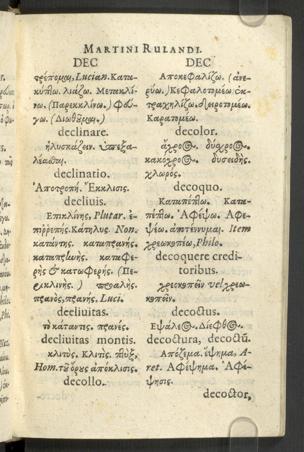 MARTINI RULANDI.
DEC
τρέπομαι, Lucian. Κατα-
κύπτω. λιάζω. Μετακλί-
νω. (Παρεκκλίνω.) Φεύ-
γω.
declinare.
ἠλυσκάζειν. Ὑπεξα-
declinatio.
Ἀποτροπή. Ἔκκλισις.
decliuis.
Ἐπικλίνης, Plutar. ἐ-
πιῤῥεπής. Κάτηλυς. Non.
κατάντης. καταπρανής.
καταφε-
ρὴς & κατωφερής. (Πε-
ρικλινής.) προαλής.
πρανὸς, πρανής. Luci.
decliuitas.
τὸ κάταντες. πρανές.
decliuitas montis.
κλιτὺς. Κλιτὺς. πτὺξ,
Hom. τοῦ ὄρους ἀπόκλισις.
decollo.
DEC
Ἀποκεφαλίζω. (ἀνε-
ρύω.) Κεφαλοτομέω. ἐκ-
τραχηλίζω. δειροτομέω.
Καρατομέω.
decolor.
ἄχροος. δύσχροος.
κακόχροος. δυσειδής.
χλωρός.
decoquo.
Καταπέπτω. Κατα-
πέπτω. Ἀφέψω. Ἀφε-
ψέω. Item
χρεωκοπέω, Philo.
decoquere credi-
toribus.
χρεοκοπεῖν vel χρεω-
κοπεῖν.
decoctus.
Ἑψαλέος. Δίεφθος.
decoctura, decoctū.
Ἀπόζεμα. ἕψημα, A-
ret. Ἀφέψημα. Ἀφέ-
ψησις.
decoctor,